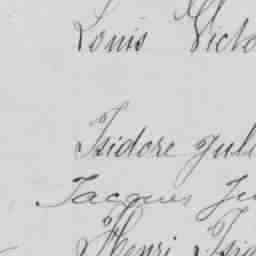 Louis Victo
Isidore Jule
Jacques Ju
Henri Isid